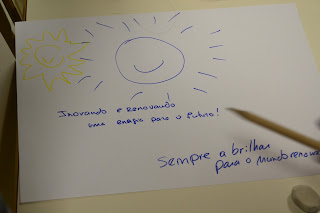 Inovando e renovando
uma energia para o futuro!
Sempre a brilhar
para o mundo renova